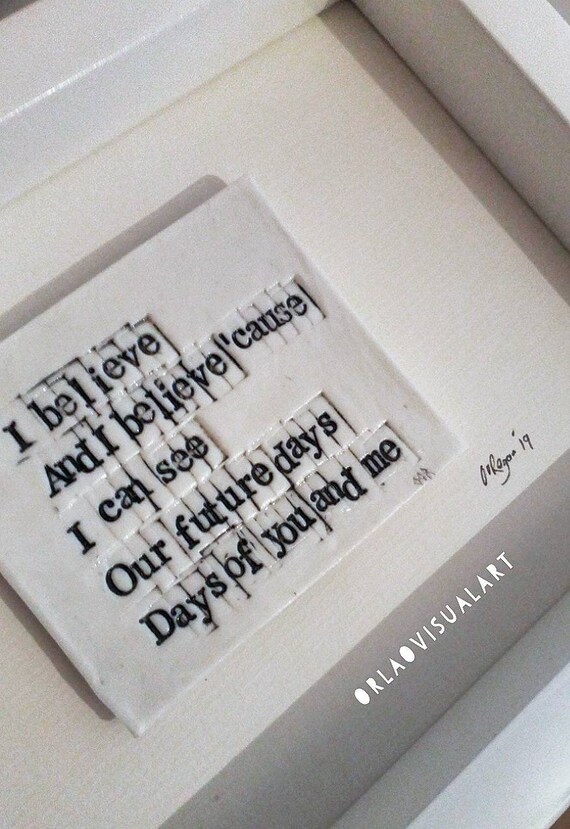 I believe
And I believe 'cause
I can see
Our future days
Days of you and me
O'Regan '19
ORLAOVISUALART